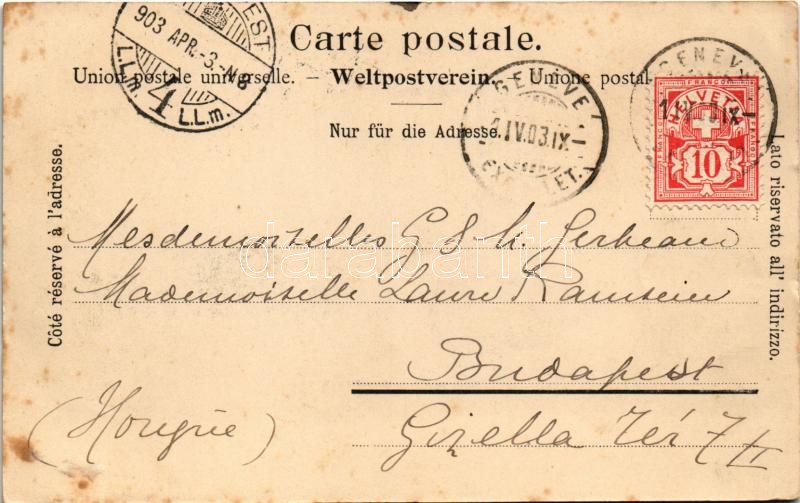 EST
903 APR.-3.-N8
L.L.m. 4 L.L.m.
Carte postale.
Union postale universelle. – Weltpostverein. – Unione postal
Nur für die Adresse.
GENÈVE
1.IV.03.IX.
GENEV
HELVETIA
FRANCO
10
Côté réservé à l'adresse.
Lato riservato all' indirizzo.
darabanth
Mesdemoiselles G & H. Gerbeaud
Mademoiselle Laure Ramseier
Budapest
(Hongrie)
Gizella Tér 7/II